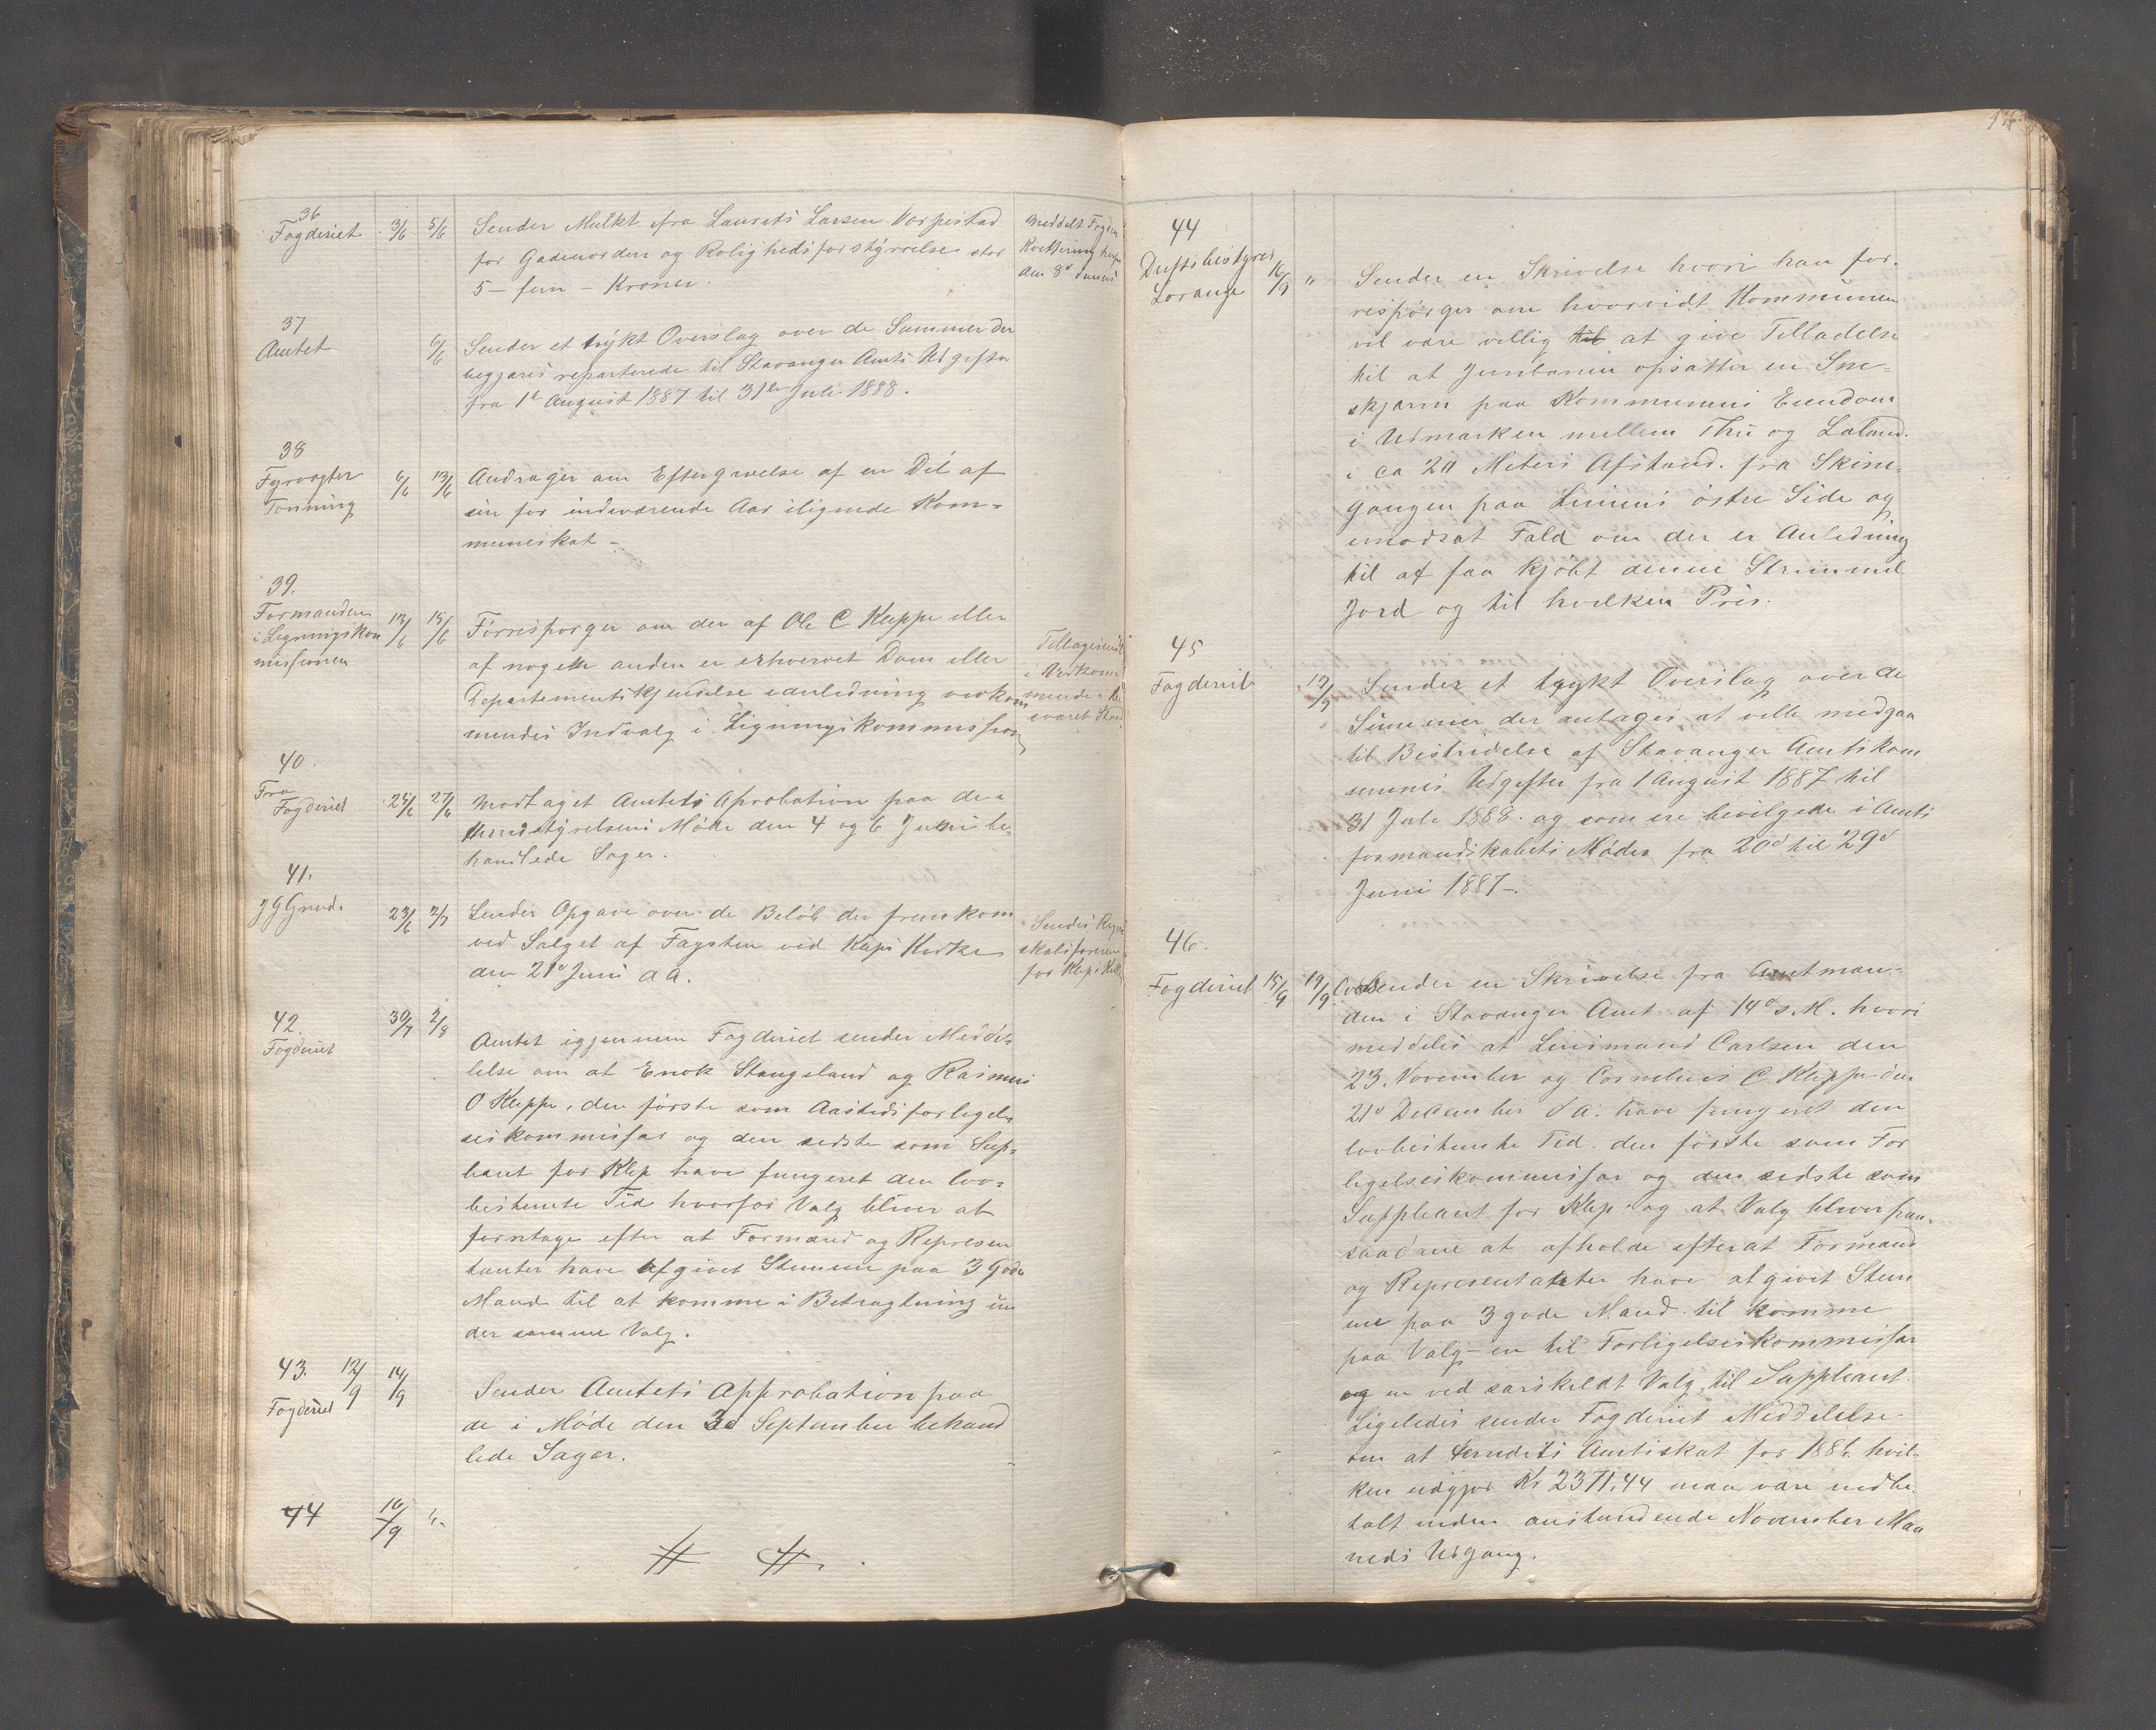 36
Fogderiet 3/6 5/6 Sender Mulkt fra Laurits Larsen Varhestad
for Gadeuorden og Rolighedsforstyrrelse stor
5 – fem – Kroner.
Meddelt Fogden
Kvittering herfor
den 8d dennes
37
Amtet 6/6 Sender et trykt Overslag over de Summer der
begjæres reparterede til Stavanger Amts Udgifter
fra 1te August 1887 til 31te Juli 1888.
38
Fyrvogter
Tonning 6/6 13/6 Andrager om Eftergivelse af en Del af
sin for indeværende Aar ilignede Kom=
muneskat –
39.
Formanden
i Ligningskom
missionen 13/6 15/6 Forrespørger om der af Ole C Kleppe eller
af nogen anden er erhvervet Dom eller
Departementskjendelse i anledning vedkom
mendes Indvalg i Ligningskommission
Tilbagesendt
i Vedkom
40.
Fra
Fogderiet 25/6 27/6 Modtaget Amtets Aprobation paa de i
Herredstyrelsens Møde den 4 og 6 Juni be=
handlede Sager.
41.
J G Grude 23/6 2/7 Sender Opgave over de Beløb der fremkom
ved Salget af Tagsten ved Kleps Kirke
den 21d Juni d A.
Sendes Regn
skabsføreren
for Kleps Kirke
42.
Fogderiet 30/7 2/8
Amtet igjennem Fogderiet sender Meddel
lelse om at Enok Stangeland og Rasmus
O Kleppe, den første som Aastedsforligel
seskommissær og den sidste som Sup=
leant for Klep have fungeret den lov=
bestemte Tid hvorfor Valg bliver at
foretage efter at Formænd og Represen
tanter have afgivet Stemme paa 3 Gode
Mænd til at komme i Betragtning un
der samme Valg.
43. 12/9 14/9
Fogderiet Sender Amtets Approbation paa
de i Møde den 3d September behand
lede Sager.
44 16/9 "
44
Driftsbestyrer
Lorange 16/9 " Sender en Skrivelse hvori han for=
respørger om hvorvidt Kommunen
vil være villig til at give Tilladelse
til at Jernbanen opsætter en Sne=
skjærm paa Kommunens Eiendom
i Udmarken mellem Thu og Laland
i ca 20 Meters Afstand fra Skine=
gangen paa Liniens østre Side og
i modsat Fald om der er Anledning
til at faa kjøbt denne Strimmel
Jord og til hvilken Pris.
45
Fogderiet 17/9 Sender et trykt Overslag over de
Summer der antages at ville medgaa
til Bestridelse af Stavanger Amtskom
munes Udgifter fra 1 August 1887 til
31 Juli 1888. og som ere bevilgede i Amts
formandskabets Møder fra 20d til 29d
Juni 1887 –.
46.
Fogderiet 15/9 19/9 Oversender en Skrivelse fra Amtman=
den i Stavanger Amt af 14d s. M. hvori
meddeles at Lensmand Carlsen den
23. November og Cornelius C. Kleppe den
21d December d A. have fungeret den
lovbestemte Tid. den første som For
ligelseskommissær og den sidste som
Suppleant for Klep og at Valg bliver paa
saadane at afholde efterat Formænd
og Representanter have afgivet Stem
me paa 3 gode Mænd til komme
paa Valg – en til Forligelseskommissær
og en ved særskildt Valg til Suppleant.
Ligeledes sender Fogderiet Meddelelse
om at Herredets Amtsskat for 1886 hvil=
ken udgjør Kr 2371,44 maa være indbe
talt inden anstundende November Maa
neds Udgang.